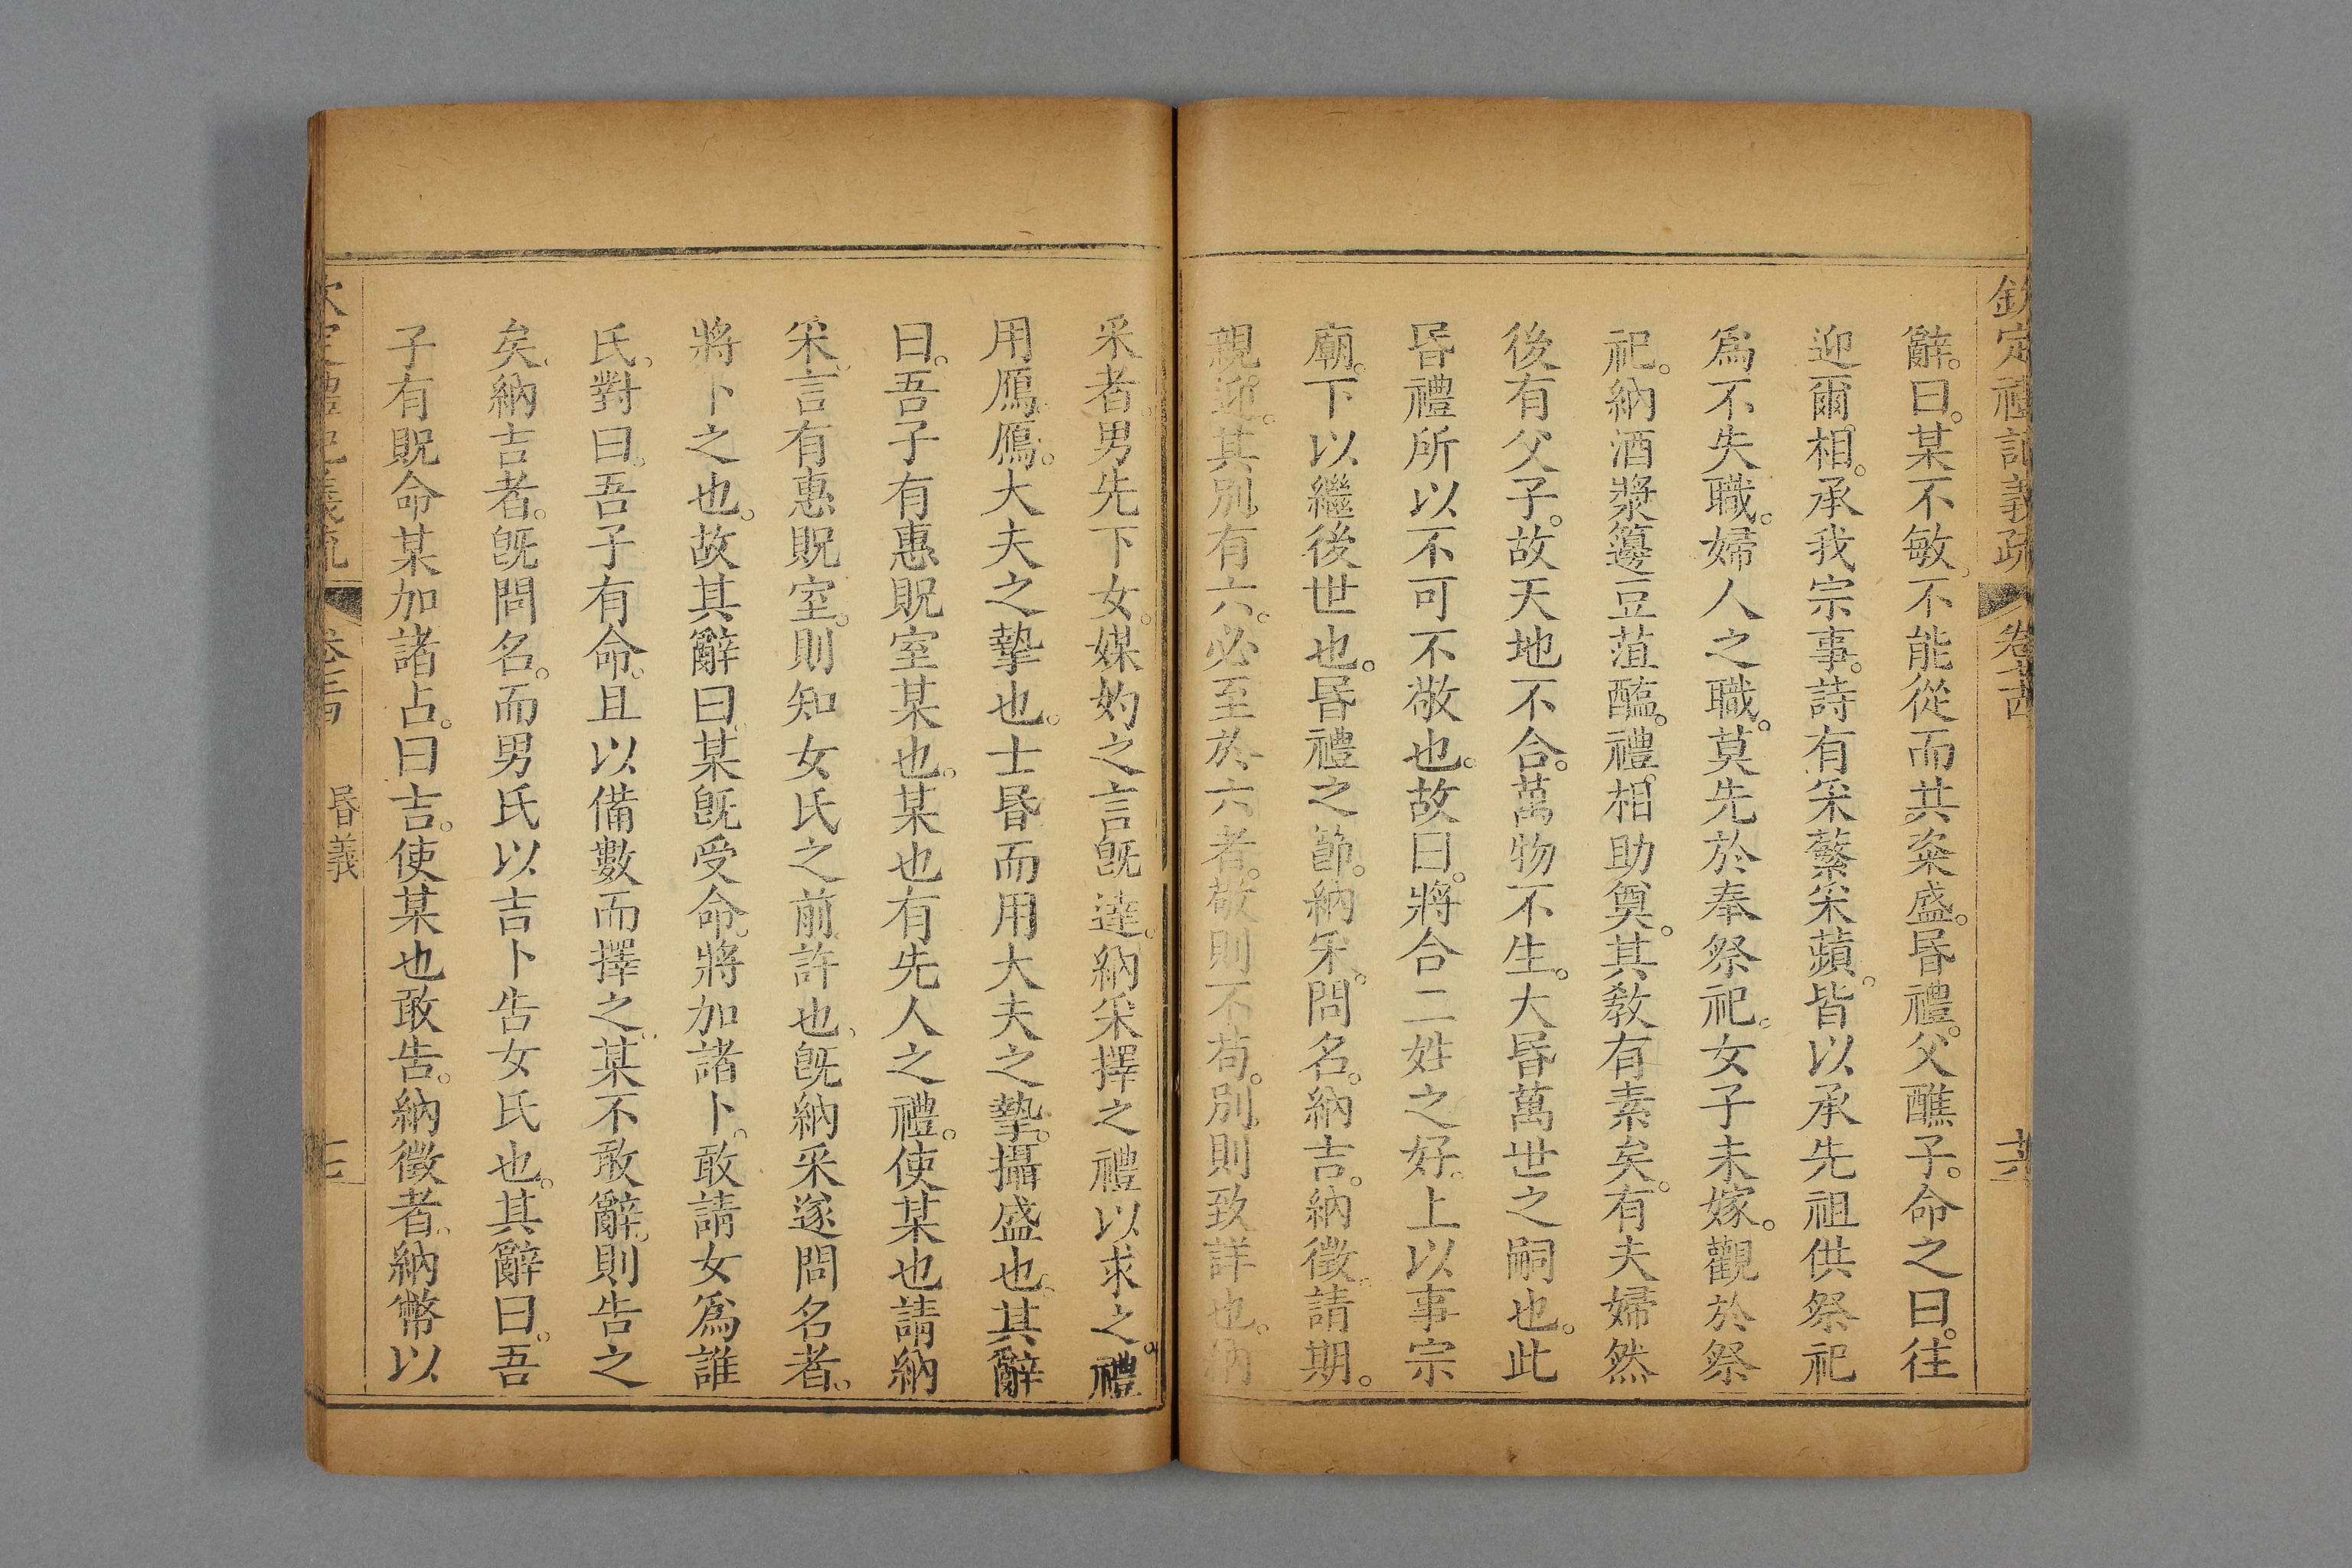 欽定禮記義疏 卷七十四
辭。曰。某不敏。不能從而共粢盛。昬禮。父醮子。命之曰。往
迎爾相。承我宗事。詩有采蘩采蘋。皆以承先祖供祭祀
爲不失職。婦人之職。莫先於奉祭祀。女子未嫁。觀於祭
祀。納酒漿籩豆菹醢。禮相助奠。其敎有素矣。有夫婦然
後有父子。故天地不合。萬物不生。大昬萬世之嗣也。此
昬禮所以不可不敬也。故曰。將合二姓之好。上以事宗
廟。下以繼後世也。昬禮之節。納采。問名。納吉。納徵。請期。
親迎。其別有六。必至於六者。敬則不苟。別則致詳也。納
采者。男先下女。媒妁之言旣達。納采擇之禮以求之。禮
用鴈。鴈。大夫之摯也。士昬而用大夫之摯。攝盛也。其辭
曰。吾子有惠貺室某也。某也有先人之禮。使某也請納
采。言有惠貺室。則知女氏之前許也。旣納采遂問名者。
將卜之也。故其辭曰。某旣受命。將加諸卜。敢請女爲誰
氏。對曰。吾子有命。且以備數而擇之。某不敢辭。則告之
矣。納吉者。旣問名。而男氏以吉卜告女氏也。其辭曰。吾
子有貺命某加諸占。曰吉。使某也敢告。納徵者。納幣以
昬義